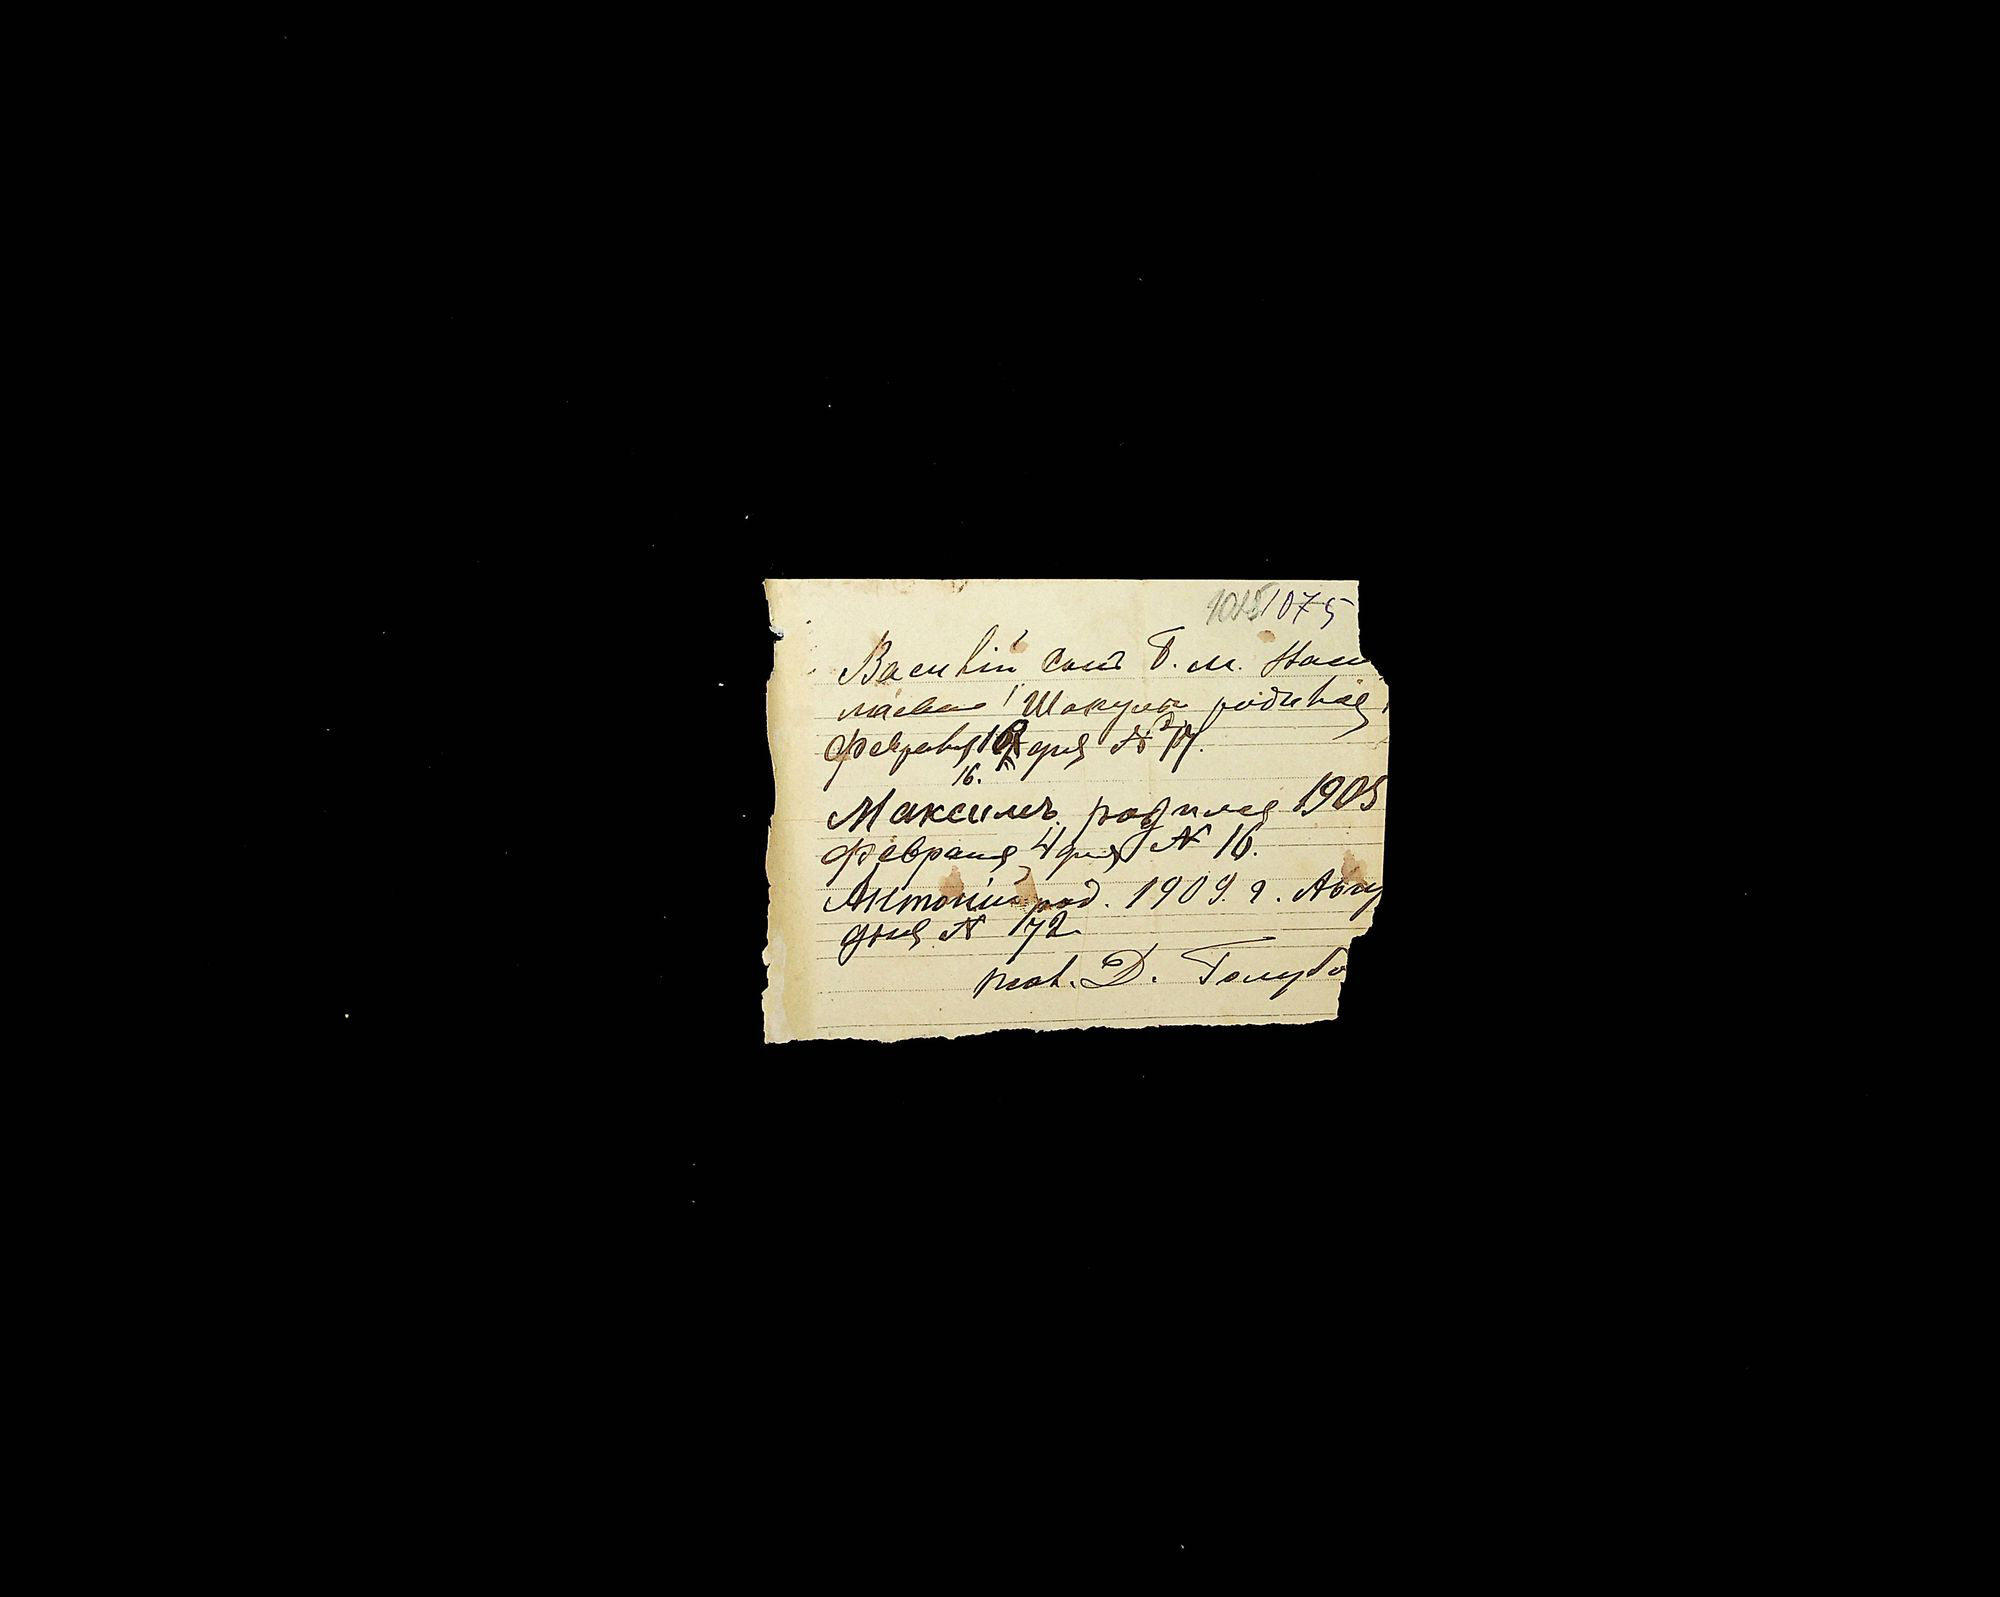 1075
Василій сынъ Г. М.
Шакула родился
февраля 16 дня №
16.
Максимъ родился 1905
февраля 4 дня № 16.
Антоній род. 1909. г. Авгу
дня № 72
Д. Голубо